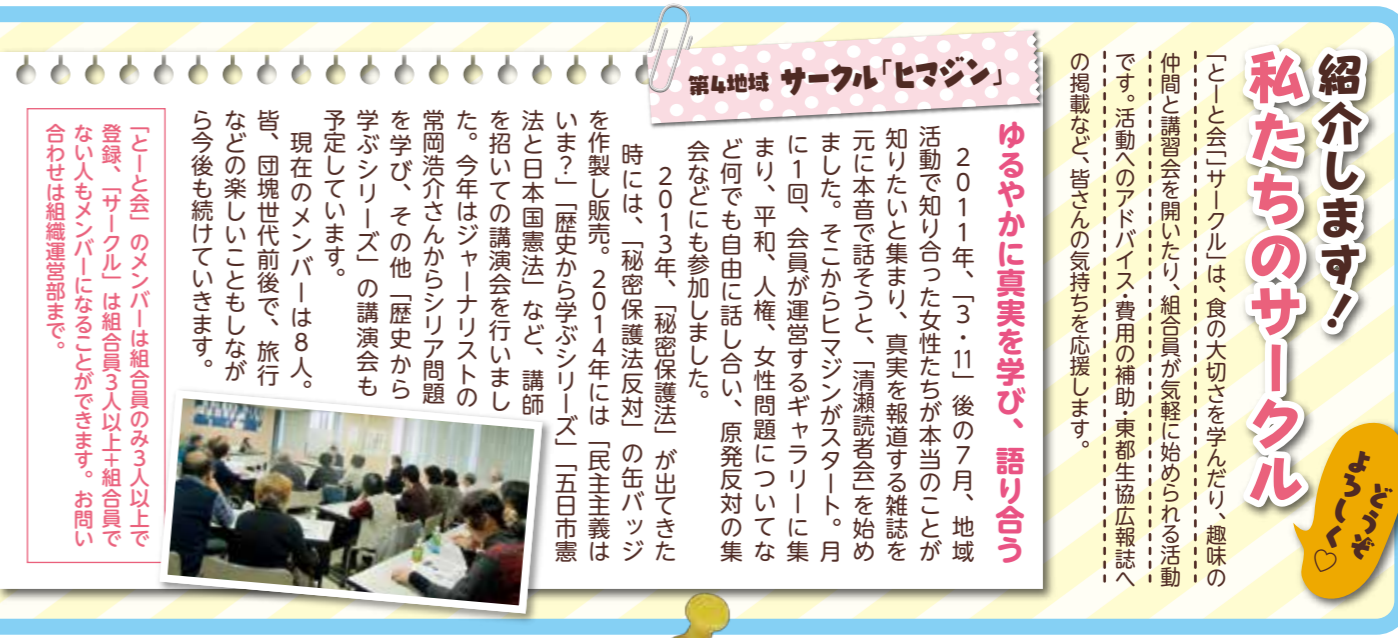 紹介します!
私たちのサークル
どうぞ
よろしく♡
「とーと会」「サークル」は、食の大切さを学んだり、趣味の
仲間と講習会を開いたり、組合員が気軽に始められる活動
です。活動へのアドバイス・費用の補助・東都生協広報誌へ
の掲載など、皆さんの気持ちを応援します。
第4地域 サークル「ヒマジン」
ゆるやかに真実を学び、語り合う
2011年、「3・11」後の7月、地域
活動で知り合った女性たちが本当のことが
知りたいと集まり、真実を報道する雑誌を
元に本音で話そうと、「清瀬読者会」を始め
ました。そこからヒマジンがスタート。月
に1回、会員が運営するギャラリーに集
まり、平和、人権、女性問題についてな
ど何でも自由に話し合い、原発反対の集
会などにも参加しました。
2013年、「秘密保護法」が出てきた
時には、「秘密保護法反対」の缶バッジ
を作製し販売。2014年には「民主主義は
いま?」「歴史から学ぶシリーズ」「五日市憲
法と日本国憲法」など、講師
を招いての講演会を行いまし
た。今年はジャーナリストの
常岡浩介さんからシリア問題
を学び、その他「歴史から
学ぶシリーズ」の講演会も
予定しています。
現在のメンバーは8人。
皆、団塊世代前後で、旅行
などの楽しいこともしなが
ら今後も続けていきます。
「とーと会」のメンバーは組合員のみ3人以上で
登録、「サークル」は組合員3人以上+組合員で
ない人もメンバーになることができます。お問い
合わせは組織運営部まで。